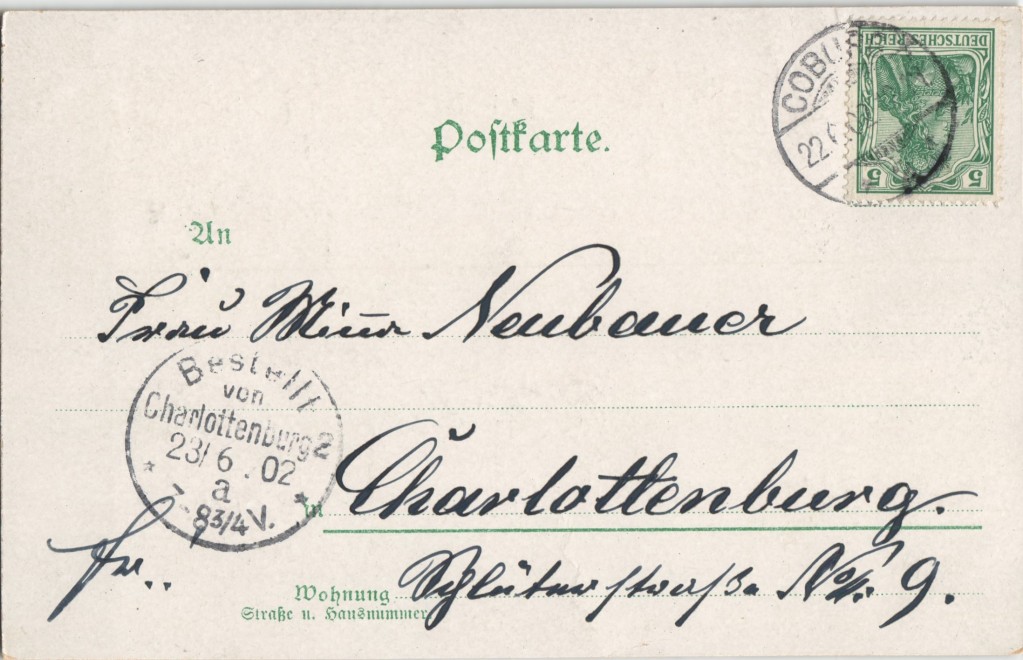 DEUTSCHES REICH
5 5
COBURG
22.6.02
Postkarte.
An
Frau Minna Neubauer
Bestellt
von
Charlottenburg 2
23/6.02
a
7-8¾V.
in Charlottenburg.
fr..
Wohnung Schlüterstraße No. 9.
Straße u. Hausnummer